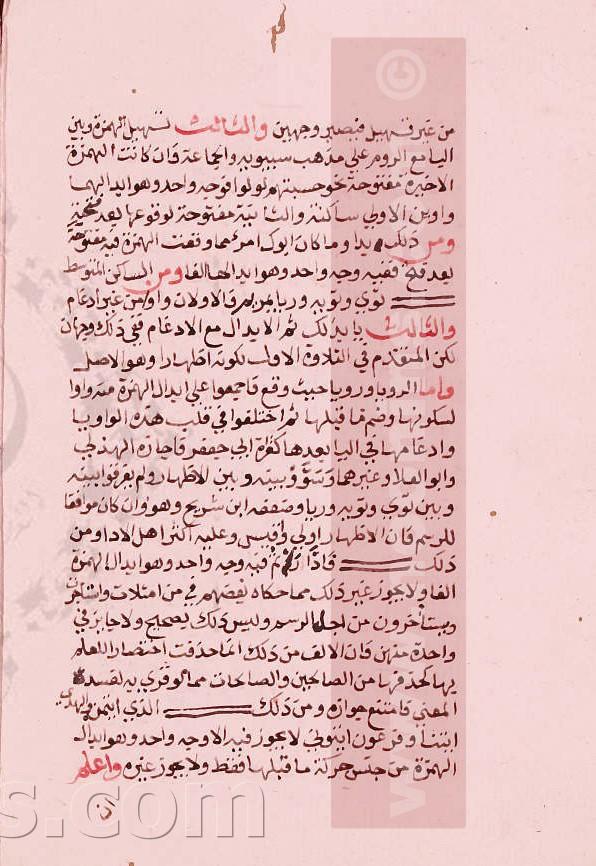 من غير تسهيل فيصير وجهين والثالث تسهيل الهمزة وبين
اليا مع الروم علي مذهب سيبويه واجماعة فان كانت الهمزة
الاخيرة مفتوحة نحو حسبتهم لولوا فوجه واحد وهو ابدالهما
واوين الاولي ساكنة والثانية مفتوحة لوقوعها بعد
ومن ذلك يبدا وما كان ابوك امرء مما وقفت الهمزة فيه مفتوحة
بعد فتح ففيه وجه واحد وهو ابدالها الفا ومن الساكن المتوسط
تووي وتويه وريا بمريم والاولات واو من غير ادغام
والثالث يا بدلك ثم الابدال مع الادغام ففي ذلك وجهان
لكن المتقدم في التلاوة الاول لكونه اظهارا وهو الاصل
واما الرويا ورويا حيث وقع فاجمعوا علي ابدال الهمزة منه واوا
لسكونها وضم ما قبلها ثم اختلفوا في قلب هذه الواو يا
وادغامها في اليا بعدها كقراة ابي جعفر فاجازه الهذلي
وابو العلا وغيرهما وسوّوا بينه وبين الاظهار ولم يفرقوا بينه
وبين توي وتويه وريا وضعفه ابن شريح وهو وان كان موافقا
للرسم فان الاظهار اولي واقيس وعليه اكثر اهل الادا ومن
ذلك فادارتم فيه وجه واحد وهو ابدال الهمزة
الفا ولا يجوز غير ذلك مما حكاه بعضهم في من امتلات واستاجرت
ويستأخرون من اجل الرسم وليس ذلك بصحيح ولا جايز في
واحدة منهن فان الالف من ذلك انما حذفت اختصارا للعلم
بها كحذفها من الصالحين والصالحات مما لو قري به لفسد
المعني فامتنع جوازه ومن ذلك الذي ايتمن والهدي
ايتنا وفرعون ايتوني لا يجوز فيه الا وجه واحد وهو ابدال
الهمزة من جنس حركة ما قبلها فقط ولا يجوز غيره واعلم
ان
s.com